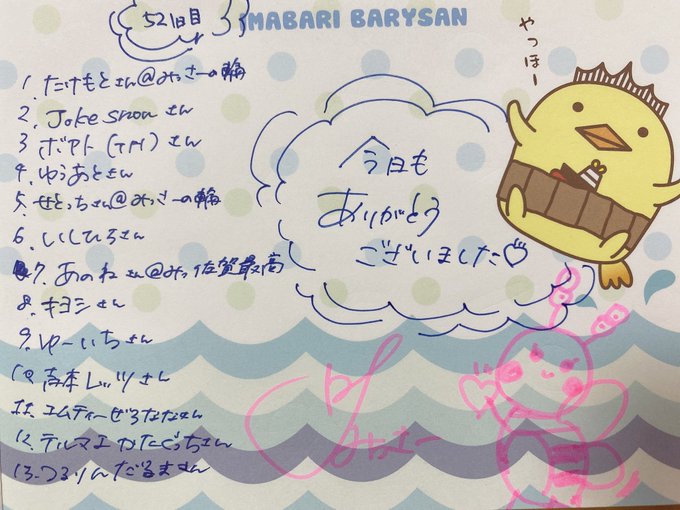 521日目
IMABARI BARYSAN
やっほー
1. たけもとさん@みっさーの輪
2. Joke snowさん
3 ボアト(TN)さん
4. ゆうあとさん
5. せとっちさん@みっさーの輪
6. いしひろさん
7. あのねさん@みっ佐賀最高
8. キヨシさん
9. ゆーいちさん
10. 高本レッツさん
11. エムティーぜろななさん
12. テルマエかたぐっちさん
13. つるりんだるまさん
今日も
ありがとう
ございました♡
みっさー